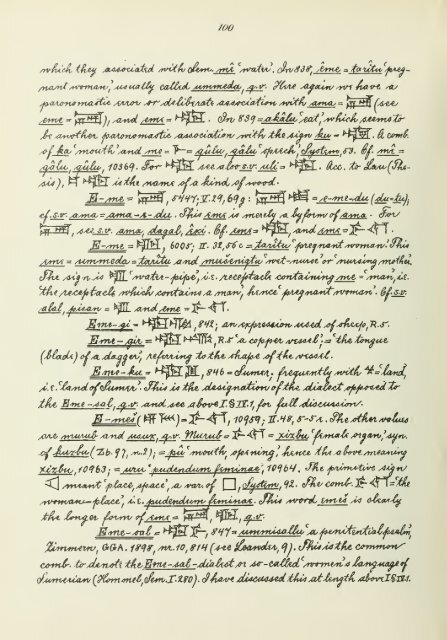 100
which they associated with Sem. mê 'water'. In 838, ême = tarîtu 'preg-
nant woman,' usually called ummeda, q.v. Here again we have a
paronomastic error or deliberate association with ama = (see
eme = ), and eme = . In 839 = akâlu 'eat,' which seems to
be another paronomastic association with the sign ku = . A comb.
of ka 'mouth' and me = = qûlu, qâlu 'speech,' System, 53. Cf. mê =
qâlu, qûlu, 10369. For see also s.v. uli = . Acc. to Lau (The-
sis), is the name of a kind of wood.
E-me = , 5447; V. 29, 69g: = e-me-du (du-ku),
cf. s.v. ama = ama-e-du. This eme is merely a byform of ama. For
, see s.v. ama, dagal, . Cf. eme = , and eme = .
E-me = , 6005; II. 32, 56c = tarîtu 'pregnant woman.' This
eme = ummeda = tarîtu and mušênigtu 'wet-nurse' or 'nursing mother.'
The sign is 'water-pipe', i.e. receptacle containing me = 'man,' i.e.
'the receptacle which contains a man,' hence 'pregnant woman.' Cf. s.v.
alal, pisan = and eme = .
Eme-gi = , 842; an expression used of sheep, R.5.
Eme-gir = R.5 'a copper vessel;' = 'the tongue
(blade) of a dagger', referring to the shape of the vessel.
Eme-ku = , 846 = Sumer; frequently with = 'land,'
i.e. 'land of Sumer.' This is the designation of the dialect opposed to
the Eme-sal, q.v. and see above I. § IV. 1, for full discussion.
E-meš ( ) = , 10959; II. 48, 5-5 . The other values
are murub and , q.v. Murub = = xizbu 'female organ,' syn.
of kuzbu (Zb. 97, n. 2); = pû 'mouth, opening,' hence the above meaning
xizbu, 10963; = uru 'pudendum feminae,' 10964. The primitive sign
meant 'place, space', a var. of , System, 92. The comb. = 'the
woman-place', i.e. pudendum feminae. This word emeš is clearly
the longer form of eme = , q.v.
Eme-sal = , 847 = ummisallu 'a penitential psalm,'
Zimmern, GGA. 1898, nr. 10, 814 (see Leander, 9). This is the common
comb. to denote the Eme-sal-dialect, or so-called 'women's language' of
Sumerian (Hommel, Sem. I. 280). I have discussed this at length above I § IV. 1.